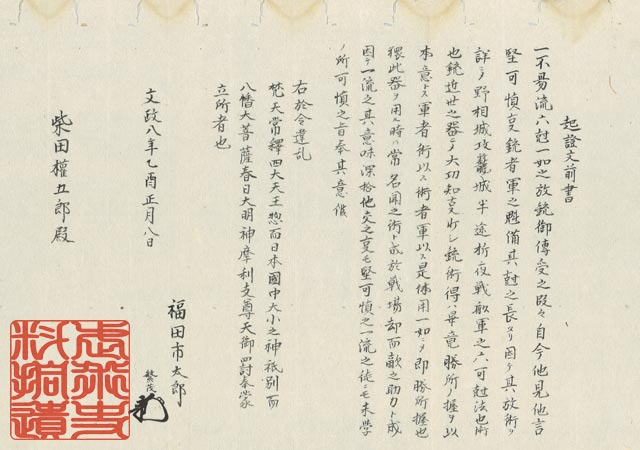 起證文前書
一不易流六尅一如之放銃御傳受之段々自今他見他言
堅可慎㕝銃者軍之魁備其尅之長タリ因テ其放術ヲ
詳ラ野相城攻籠城半途折夜戰敵軍之六可尅法也術
也銃近世之器ニノ大功知㕝難シ銃術得ハ畢竟勝所ノ握ヲ以
本意トス軍者術以ス術者軍以ス是体用一如ニヲ即勝所握也
猥此器ヲ用ル時ハ常名聞之術ト成於戰場却而敵之助力ト成
因テ一流之其意味深拾他交之㕝モ堅可慎之一流之徒ニモ未學
ノ所可慎之旨奉其意候
右於令違乱
梵天常釋四大天王惣而日本國中大小之神祇別而
八幡大菩薩春日大明神摩利支尊天御罸奉蒙
立所者也
文政八年乙酉正月八日
福田市太郎
繁茂
柴田權五郎殿